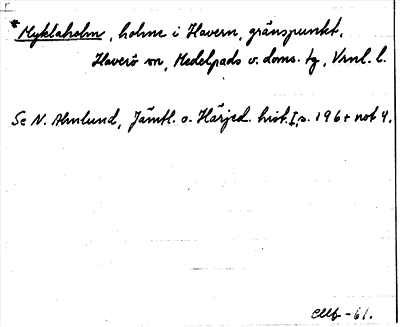 *Myklaholm, holme i Havern, gränspunkt,
Haverö sn, Medelpads v. doms. tg, Vrnl. l.
Se N. Ahnlund, Jämtl. o. Härjed. hist. I, s. 196 + not 4.
-61.